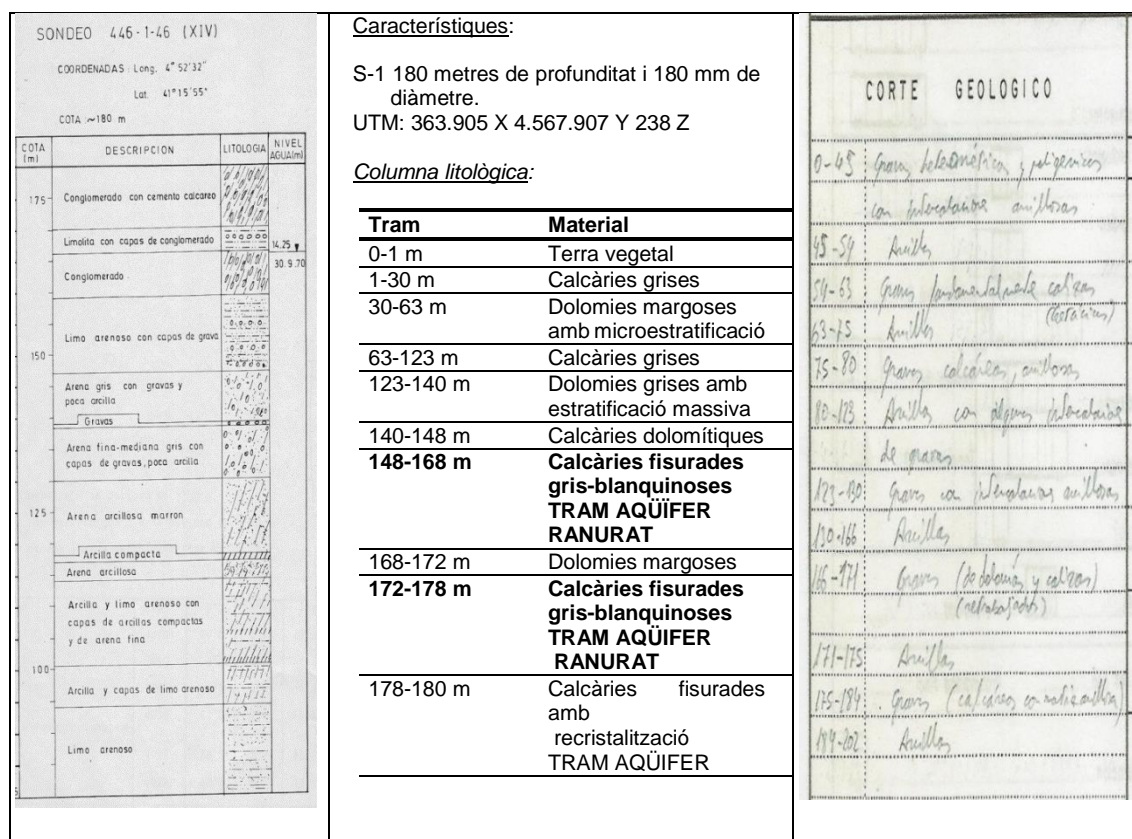 SONDEO 446-1-46 (XIV)
COORDENADAS: Long. 4° 52'32"
Lat. 41°15'55"
COTA :~180 m
COTA (m)
DESCRIPCION
LITOLOGIA
NIVEL AGUA(m)
175
Conglomerado con cemento calcareo
Limolita con capas de conglomerado
14.25
30.9.70
Conglomerado
Limo arenoso con capas de grava
150
Arena gris con gravas y
poca arcilla
Gravas
Arena fina-mediana gris con
capas de gravas, poca arcilla
125
Arena arcillosa marron
Arcilla compacta
Arena arcillosa
Arcilla y limo arenoso con
capas de arcillas compactas
y de arena fina
100
Arcilla y capas de limo arenoso
Limo arenoso
Característiques:
S-1 180 metres de profunditat i 180 mm de
diàmetre.
UTM: 363.905 X 4.567.907 Y 238 Z
Columna litològica:
Tram Material
0-1 m Terra vegetal
1-30 m Calcàries grises
30-63 m Dolomies margoses
amb microestratificació
63-123 m Calcàries grises
123-140 m Dolomies grises amb
estratificació massiva
140-148 m Calcàries dolomítiques
148-168 m Calcàries fisurades
gris-blanquinoses
TRAM AQÜÏFER
RANURAT
168-172 m Dolomies margoses
172-178 m Calcàries fisurades
gris-blanquinoses
TRAM AQÜIFER
RANURAT
178-180 m Calcàries fisurades
amb
recristalització
TRAM AQÜIFER
CORTE GEOLOGICO
0-45 Gravas heterométricas y poligénicas
con intercalaciones arcillosas
45-54 Arcillas
54-63 Gravas fundamentalmente calizas
63-75 Arcillas
75-80 Gravas calcáreas, arcillosas
80-123 Arcillas con algunas intercalaciones
de gravas
123-130 Gravas con intercalaciones arcillosas
130-166 Arcillas
166-171 Gravas (de dolomías y calizas)
171-175 Arcillas
175-184 Gravas (calcáreas con matriz arcillosa)
184-202 Arcillas